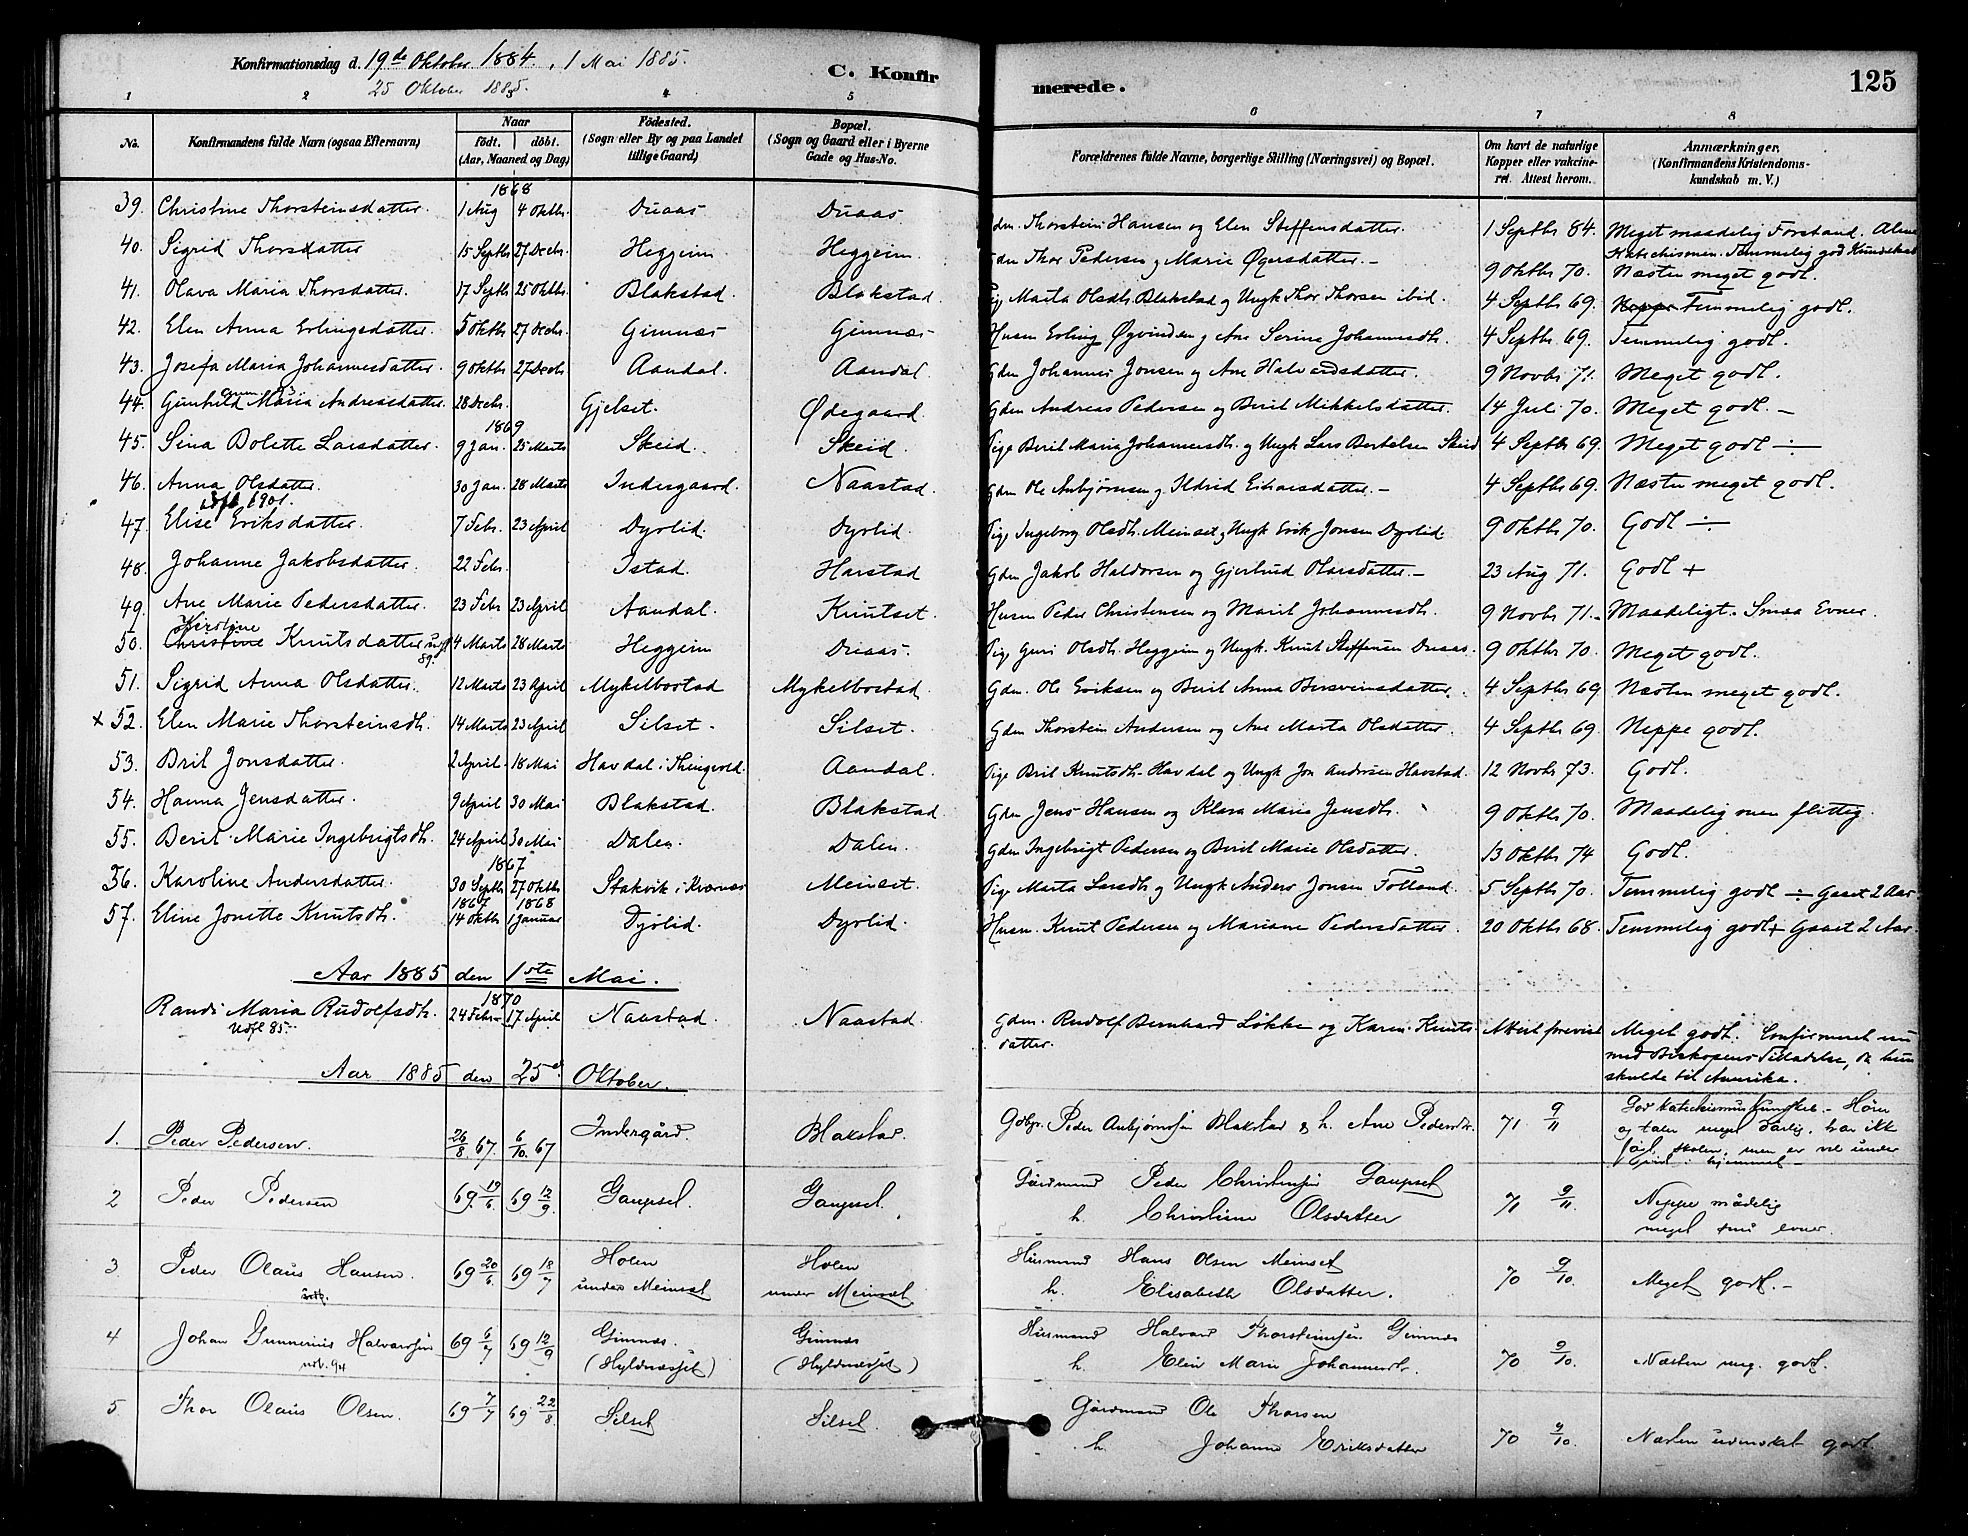 Konfirmationsdag d. 19de Oktober 1884, 1 Mai 1885.
25 Oktober 1885.
C. Konfirmerede.
125
1 2 4 5 6 7 8
No. Konfirmandens fulde Navn (ogsaa Efternavn) Naar födt. döbt. (Aar, Maaned og Dag) Födested. (Sogn eller By og paa Landet tillige Gaard) Bopæl. (Sogn og Gaard eller i Byerne Gade og Hus-No. Forældrenes fulde Navne, borgerlige Stilling (Næringsvei) og Bopæl. Om havt de naturlige Kopper eller vakcineret. Attest herom. Anmærkninger. (Konfirmandens Kristendomskundskab m. V.)
1868
39. Christine Thorsteinsdatter. 1 Aug 4 Oktbr. Duaas Duaas Gdm. Thorstein Hansen og Elen Steffensdatter. 1 Septbr 84. Meget maadelig Forstand. Alene Katechismen. Temmelig god Kundskab
40. Sigrid Thorsdatter 15 Septbr 27 Decbr. Heggeim Heggeim Gdm Thor Pedersen og Marie Øgersdatter. – 9 Oktbr 70. Næsten meget godt.
41. Olava Maria Thorsdatter. 17 Septbr 25 Oktbr. Blakstad. Blakstad. Pig. Marta Olsdtr. Blakstad og Ungk Thor Thorsen ibid. 4 Septbr 69. Neppe Temmelig godt.
42. Elen Anna Erlingsdatter. 5 Oktbr 27 Decbr. Gimnæs Gimnæs Husm Erling Øyvindsen og Ane Serine Johannesdtr. 4 Septbr 69. Temmelig godt.
43. Josefa Maria Johannesdatter. 9 Oktbr 27 Decbr. Aandal. Aandal Gdm Johannes Jonsen og Ane Halvardsdatter. 9 Novbr 71. Meget godt.
44. Gunhild Maria Andreasdatter. 28 Decbr. Gjelset. Ødegaard Gdm Andreas Pedersen og Beril Mikkelsdatter. 14 Juli 70. Meget godt. –
1869
45. Sina Bolette Larsdatter. 9 Jan. 25 Marts Skeid. Skeid. Pige Beril Maria Johannesdtr. og Ungk Lars Bertelsen Skeid 4 Septbr 69. Meget godt ÷
46. Anna Olsdatter. 30 Jan. 28 Marts Indergaard. Naastad. Gdm Ole Anbjørnsen og Ildrid Einarsdatter. – 4 Septbr 69. Næsten meget godt.
47. Elise Eriksdatter. 7 Febr. 23 April Dyrlid. Dyrlid. Pige Ingeborg Olsdtr. Meinset og Ungk Erik Jonsen Dyrlid. 9 Oktbr 70. Godt ÷
48. Johanne Jakobsdatter. 22 Febr. Istad. Harstad Gdm Jakob Haldorsen og Gjertrud Olarsdatter. – 23 Aug 71. Godt +
49. Ane Marie Pedersdatter. 23 Febr 23 April Aandal. Knutset. Husm Peder Christensen og Marit Johannesdtr. 9 Novbr 71. Maadeligt. Smaa Evner
50. Christine Kirstine Knutsdatter udfl 89. 4 Marts 28 Marts Heggeim Duaas. Pige Guri Olsdtr. Heggeim og Ungk. Knut Steffensen Duaas. 9 Oktbr 70. Meget godt.
51. Sigrid Anna Olsdatter. 12 Marts 23 April Mykelbostad Mykelbostad. Gdm. Ole Eriksen og Beril Anna Bersveinsdatter. 4 Septbr 69 Næsten meget godt.
× 52. Elen Marie Thorsteinsdtr. 14 Marts 23 April Silset. Silset. Gdm Thorstein Andersen og Ane Marta Olsdatter. 4 Septbr 69. Neppe godt.
53. Bril Jonsdatter. 2 April. 18 Mai Havdal i Thingvold. Aandal. Pige Bril Knutsdtr. Havdal og Ungk Jon Andersen Havstad. 12 Novbr 73. Godt.
54. Hanna Jensdatter. 9 April 30 Mai Blakstad. Blakstad. Gdm Jens Hansen og Klara Marie Jensdtr. 9 Oktbr 70. Maadelig men flittig
55. Beril Marie Ingebrigtsdtr. 24 April 30 Mai Dalen. Dalen. Gdm Ingebrigt Pedersen og Beril Marie Olsdatter. 13 Oktbr 74 Godt.
1867
56. Karoline Andersdatter. 30 Septbr 27 Oktbr Stokvik i Kvernæs Meinset. Pige Marta Larsdtr og Ungk Anders Jonsen Folland 5 Septbr 70. Temmelig godt ÷ Gaaet 2 Aar
1867 1868
57. Eline Jonette Knutsdtr. 14 Oktbr 1 Januar Dyrlid. Dyrlid. Husm. Knut Pedersen og Mariane Pedersdatter. 20 Oktbr 68. Temmelig godt + Gaaet 2 Aar.
Aar 1885 den 1ste Mai.
1870
Randi Maria Rudolfsdtr. 24 Febr 17 April Naastad. Naastad. Gdm. Rudolf Bernhard Løkke og Karen Knutsdatter. Attest forevist Meget godt. Confirmeret nu
Udfl 85. med Biskopens Tilladelse, da hun
skulde til Amerika.
Aar 1885 den 25de Oktober.
1. Peder Pedersen. 26/8 67. 6/10 67 Indergård. Blakstad. Gdbr. Peder Anbjørnsen Blakstad & h. Ane Pedersdtr. 71 9/11 God Katechismuskundskab. – Hører
og taler meget darlig, har ikke
føgt skolen, men er vel under
hjemmet –
2 Peder Pedersen 69. 19/6. 69 12/9. Gaupset. Gaupset. Gårdmand Peder Christensen Gaupset 71 9/11. Neppe mådelig
h. Christine Olsdatter meget små evner.
3 Peder Olaus Hansen. 69 20/6. 69 18/7 Holen under Meinset Holen under Meinset Husmand Hans Olsen Meinset 70 9/10. Meget godt. –
h. Elisabeth Olsdatter.
4 Johan Gunnerius Halvardsen 69 6/7 69 12/9 Gimnæs. (Hyldnæsset) Gimnæs (Hyldnæsset) Husmand Halvard Thorsteinsen Gimnæs 70 9/10. Næsten meg. godt.
94 h. Elen Marie Johannesdtr.
5 Thor Olaus Olsen. 69 7/7 69 22/8 Silset Silset. Gårdmand Ole Thorsen 70 9/10. Næsten udmærket godt.
h. Johanne Eriksdatter